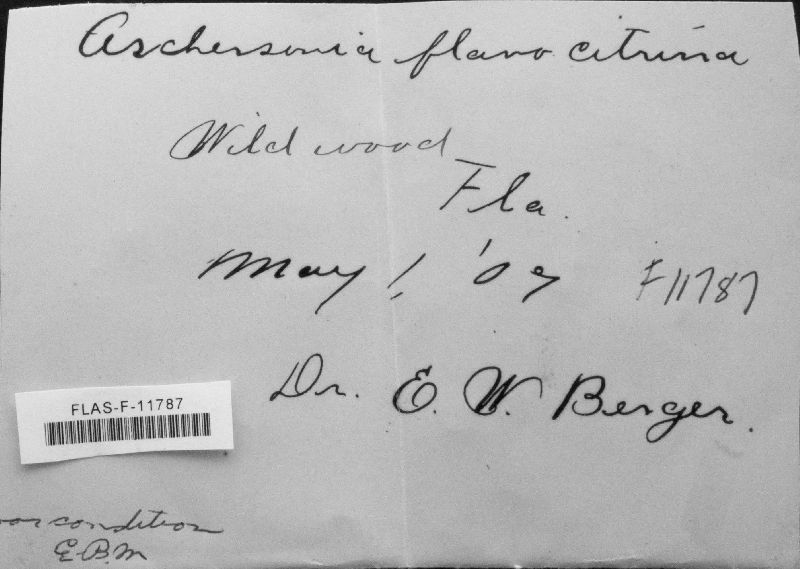 Aschersonia flavo citrina
Wildwood
Fla.
May 1, '07
F11787
Dr. E. W. Berger.
FLAS-F-11787
condition
E.B.M